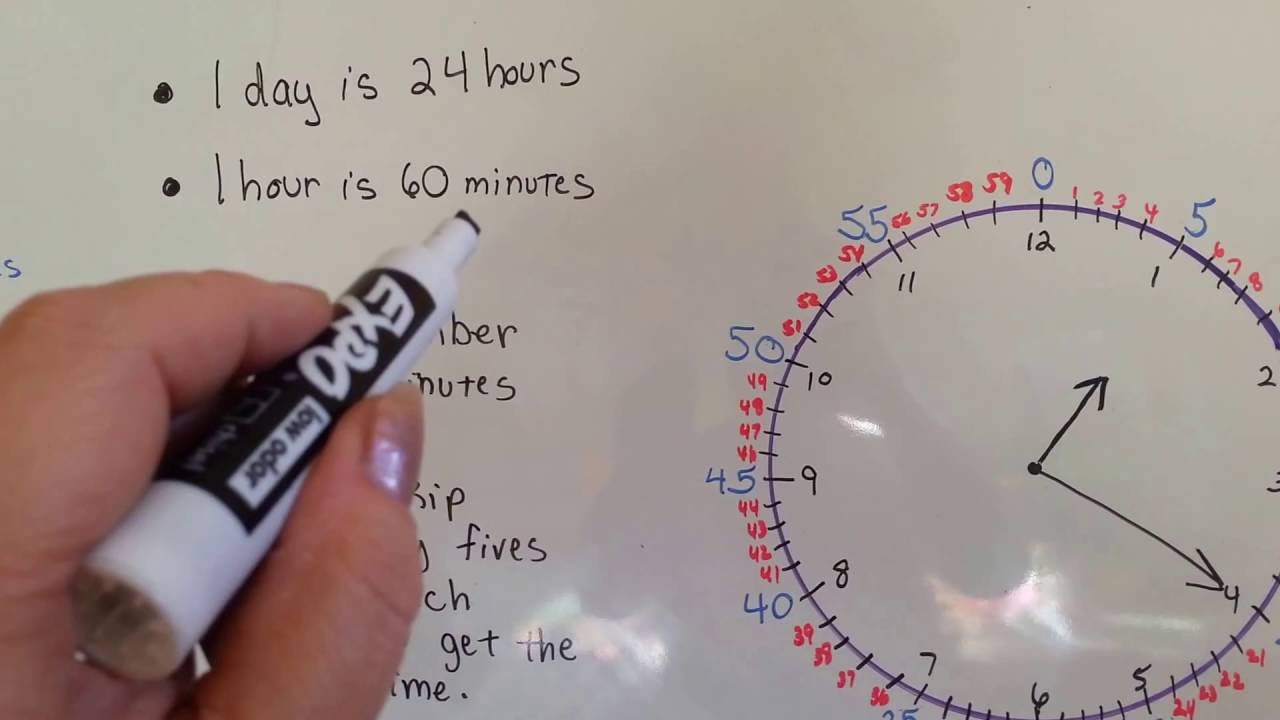 • 1 day is 24 hours
• 1 hour is 60 minutes
s
EXPO
low odor
chisel
get the
fives
0
1 2 3 4
5
6 7 8
59 58 57 56
55
54 53 52 51
50
49 48 47 46
45
44 43 42 41
40
39 38 37 36
21 22 23 24
12
1
2
3
4
5
6
7
8
9
10
11